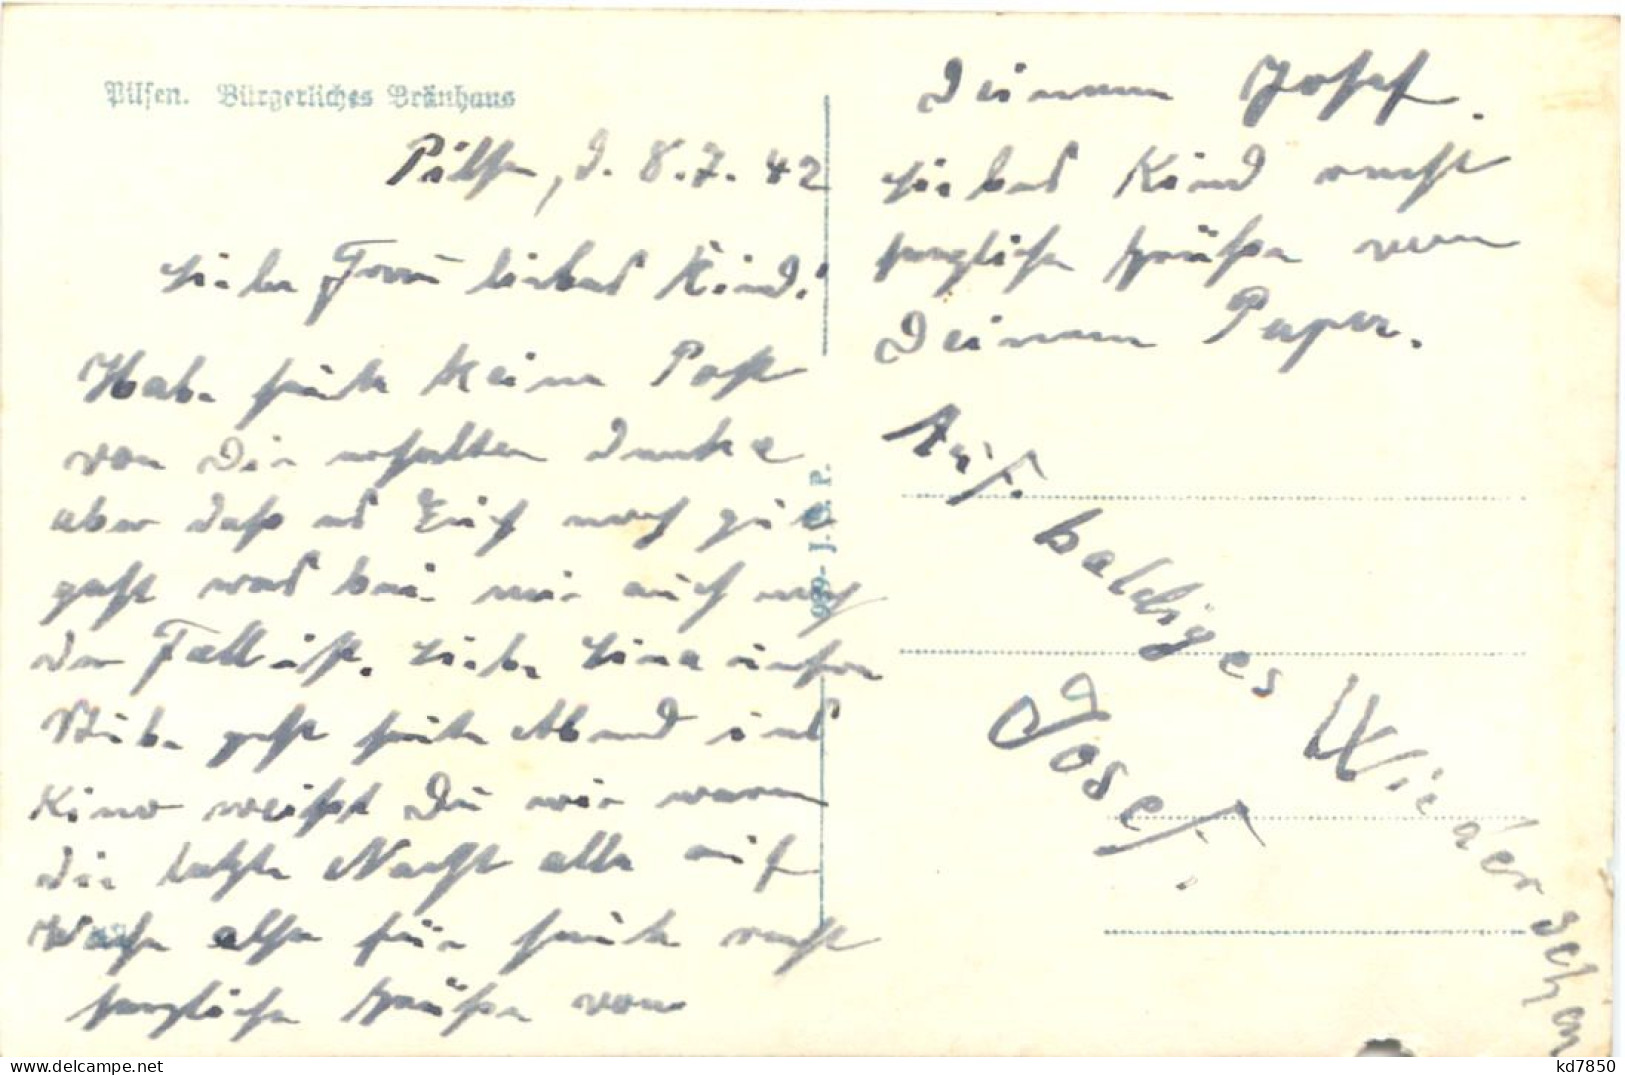 Pilsen. Bürgerliches Bräuhaus
Pilsen, d. 8.7.42
Liebe Frau liebes Kind!
Habe heute keine Post
von Dir erhalten denke
aber daß es Euch noch gut
geht was bei mir auch noch
der Fall ist. Liebe Lina unsere
Stube geht heute Abend ins
Kino weißt Du wir waren
die letzte Nacht alle auf
Wache also für heute recht
herzliche Grüße von
Deinem Josef.
Liebes Kind recht
herzliche Grüße von
Deinem Papa.
Auf baldiges Wiedersehen
Josef.
939- J. P.
kd7850